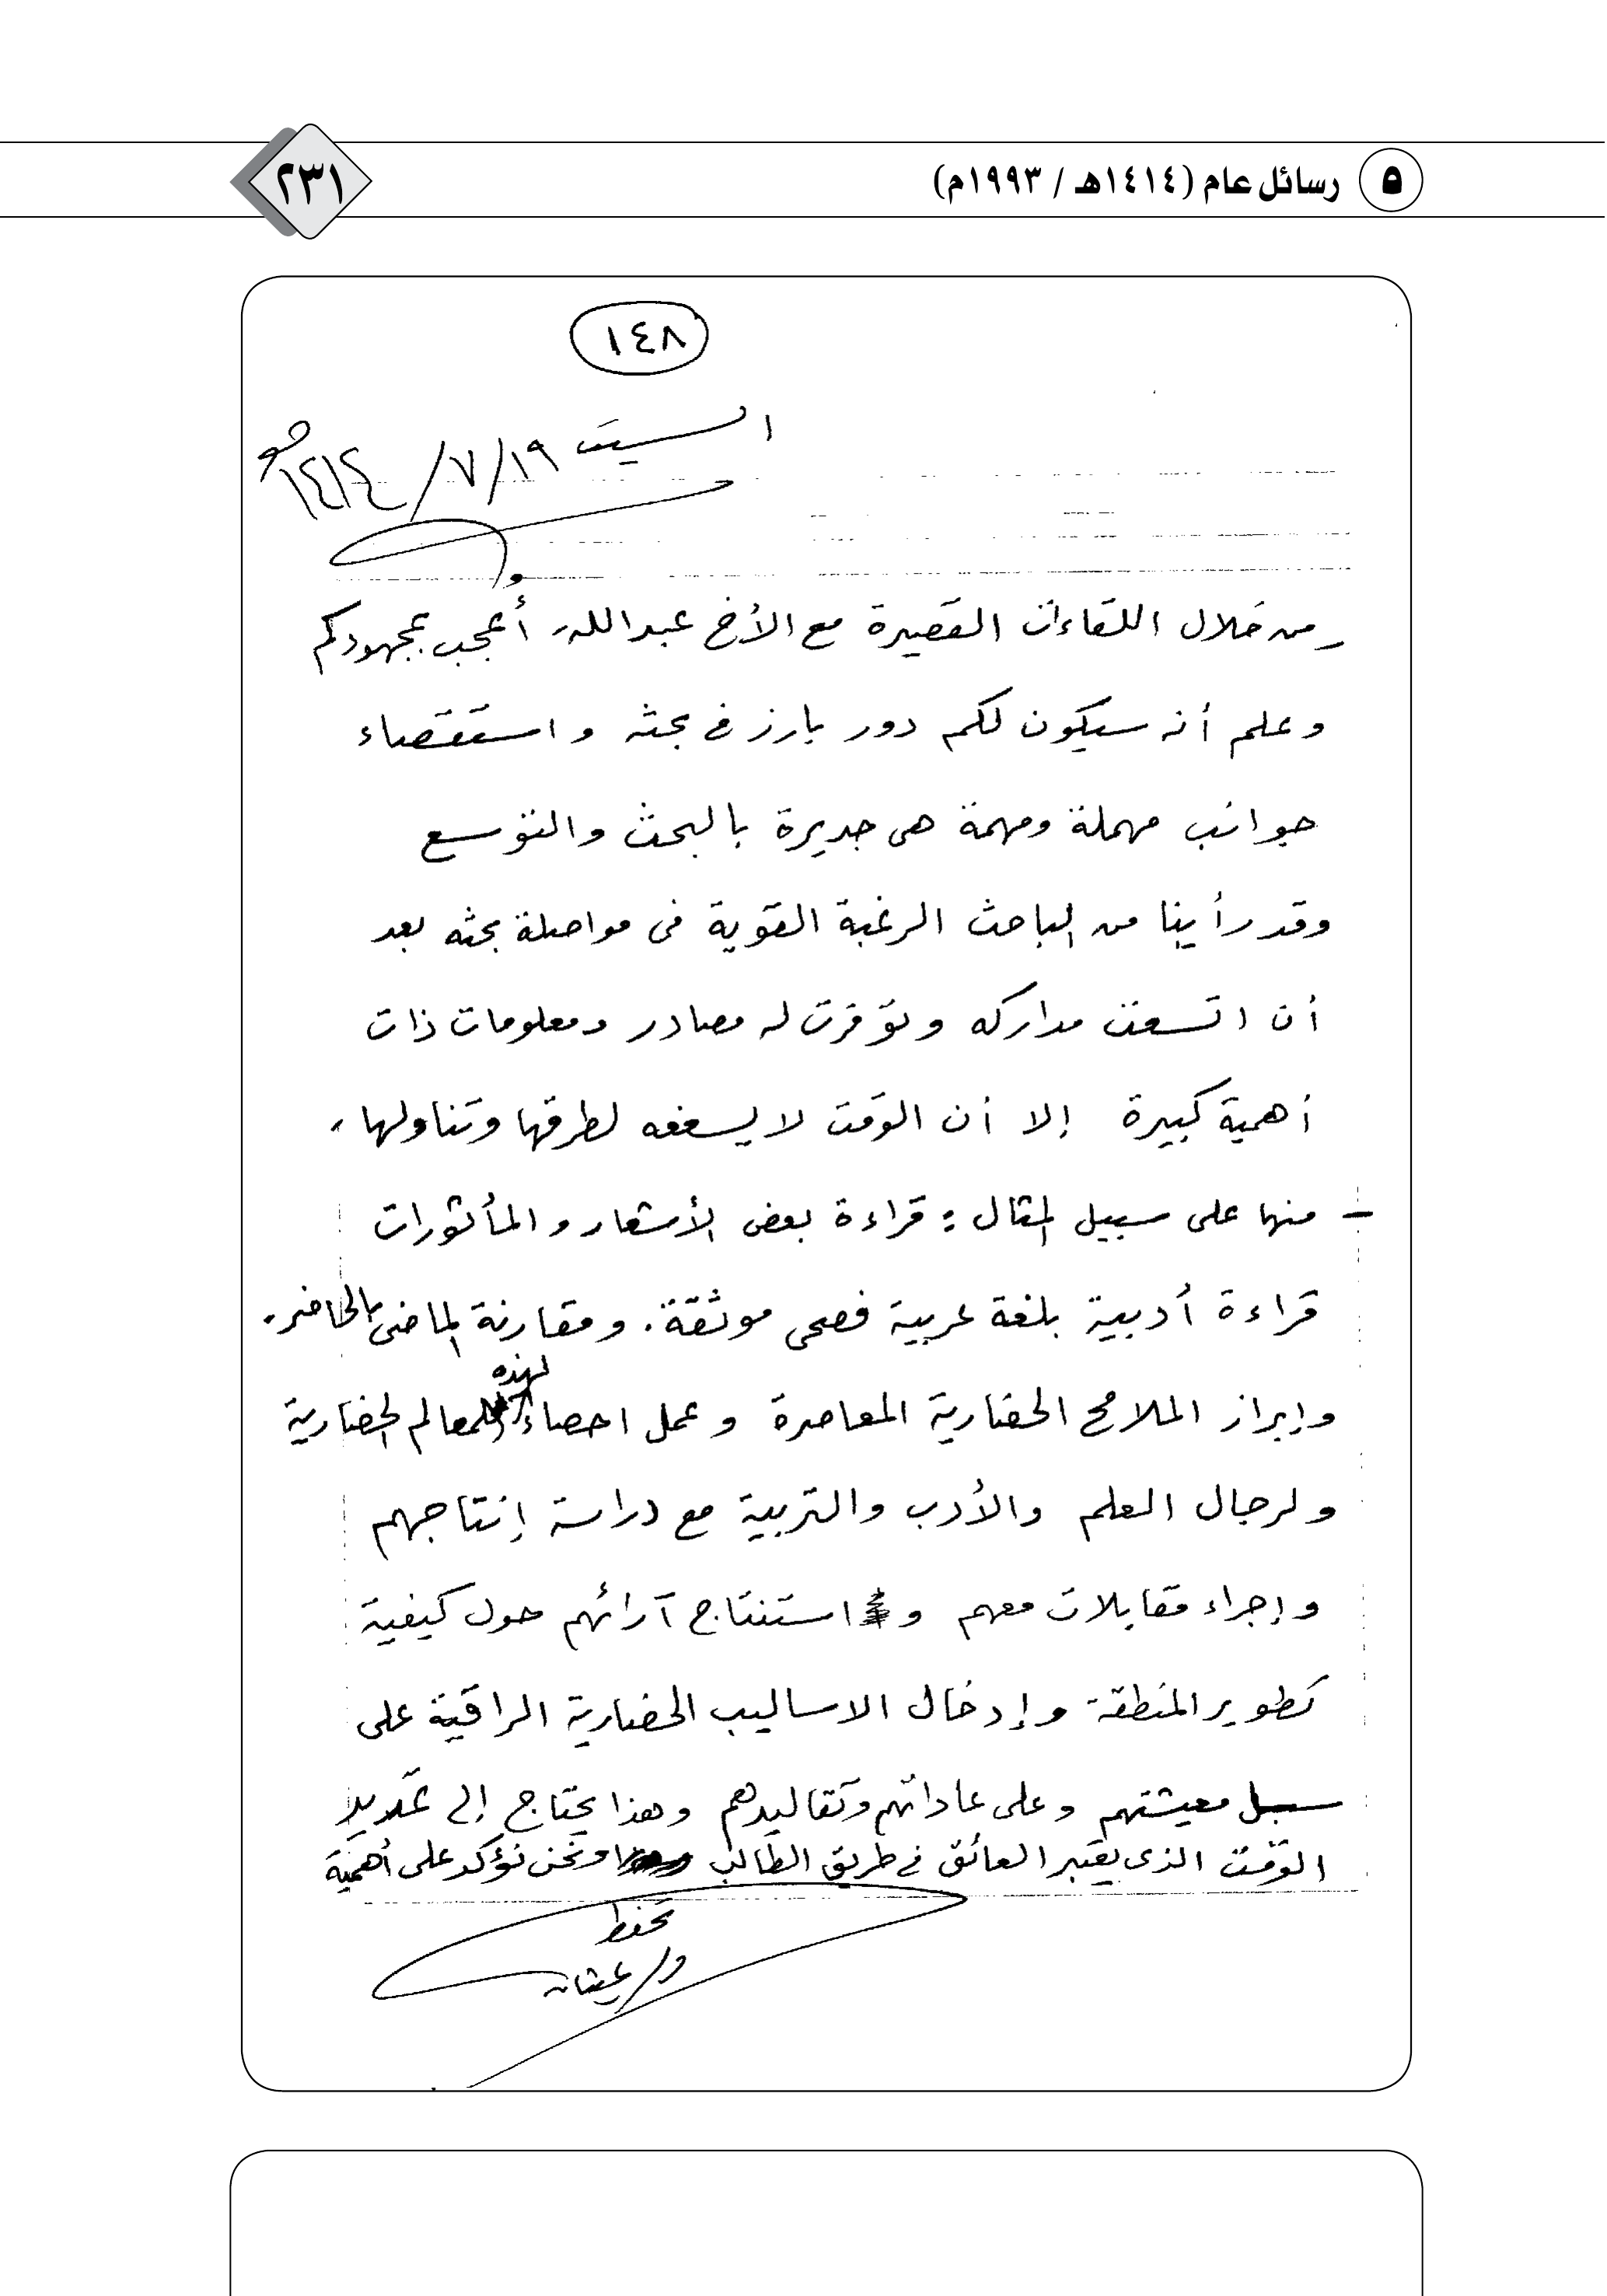 ٥ رسائل عام (١٤١٤هـ / ١٩٩٣م)
٢٣١
١٤٨
السبت ١٩/٧/١٤١٤هـ
من خلال اللقاءات القصيرة مع الأخ عبدالله، أُعجب بمجهودكم
وعلم أنه سيكون لكم دور بارز في بحثه واستقصاء
جوانب مهملة ومهمة هي جديرة بالبحث والتوسع
وقد رأينا من الباحث الرغبة القوية في مواصلة بحثه بعد
أن اتسعت مداركه وتوفرت له مصادر ومعلومات ذات
أهمية كبيرة إلا أن الوقت لا يسعفه لطرقها وتناولها،
– منها على سبيل المثال : قراءة بعض الأشعار والمأثورات
قراءة أدبية بلغة عربية فصحى موثقة. ومقارنة الماضي بالحاضر.
وإبراز الملامح الحضارية المعاصرة وعمل احصاء لهذه المعالم الحضارية
ولرجال العلم والأدب والتربية مع دراسة إنتاجهم
وإجراء مقابلات معهم و استنتاج آرائهم حول كيفية
تطوير المنطقة وإدخال الاساليب الحضارية الراقية على
سبل معيشتهم وعلى عاداتهم وتقاليدهم وهذا يحتاج إلى تمديد
الوقت الذي يعتبر العائق في طريق الطالب ونحن نؤكد على أهمية
تحفظ